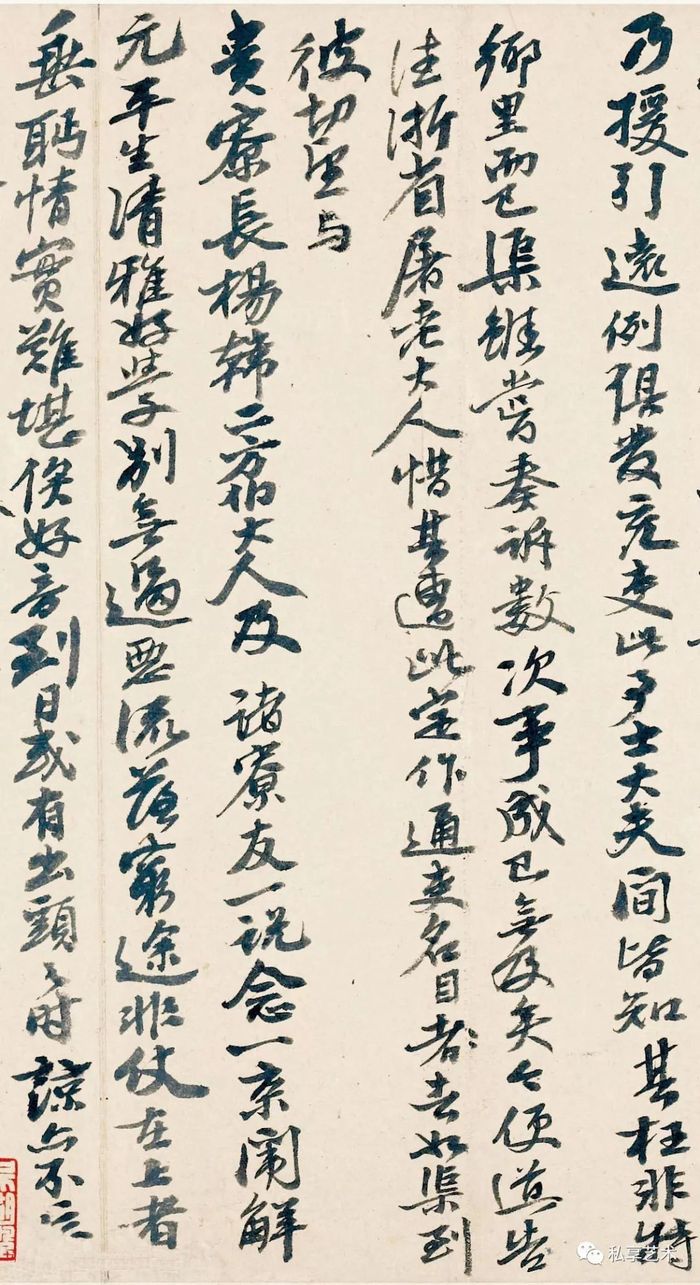 乃援引遠例俱發充吏此事士大夫間皆知其枉非特
鄉里而已渠雖嘗奏訴數次事成已無及矣今便道告
往浙省屠老大人惜其遭此定作通吏名目者如渠到
彼切望与
貴寮長楊韓二方伯大人及諸寮友一說念一京闈解
元平生清雅好學別無過惡流落窮途非仗在上者
垂眄情實難堪俟好音到日或有出頭之时諒亦不忘
私享艺术